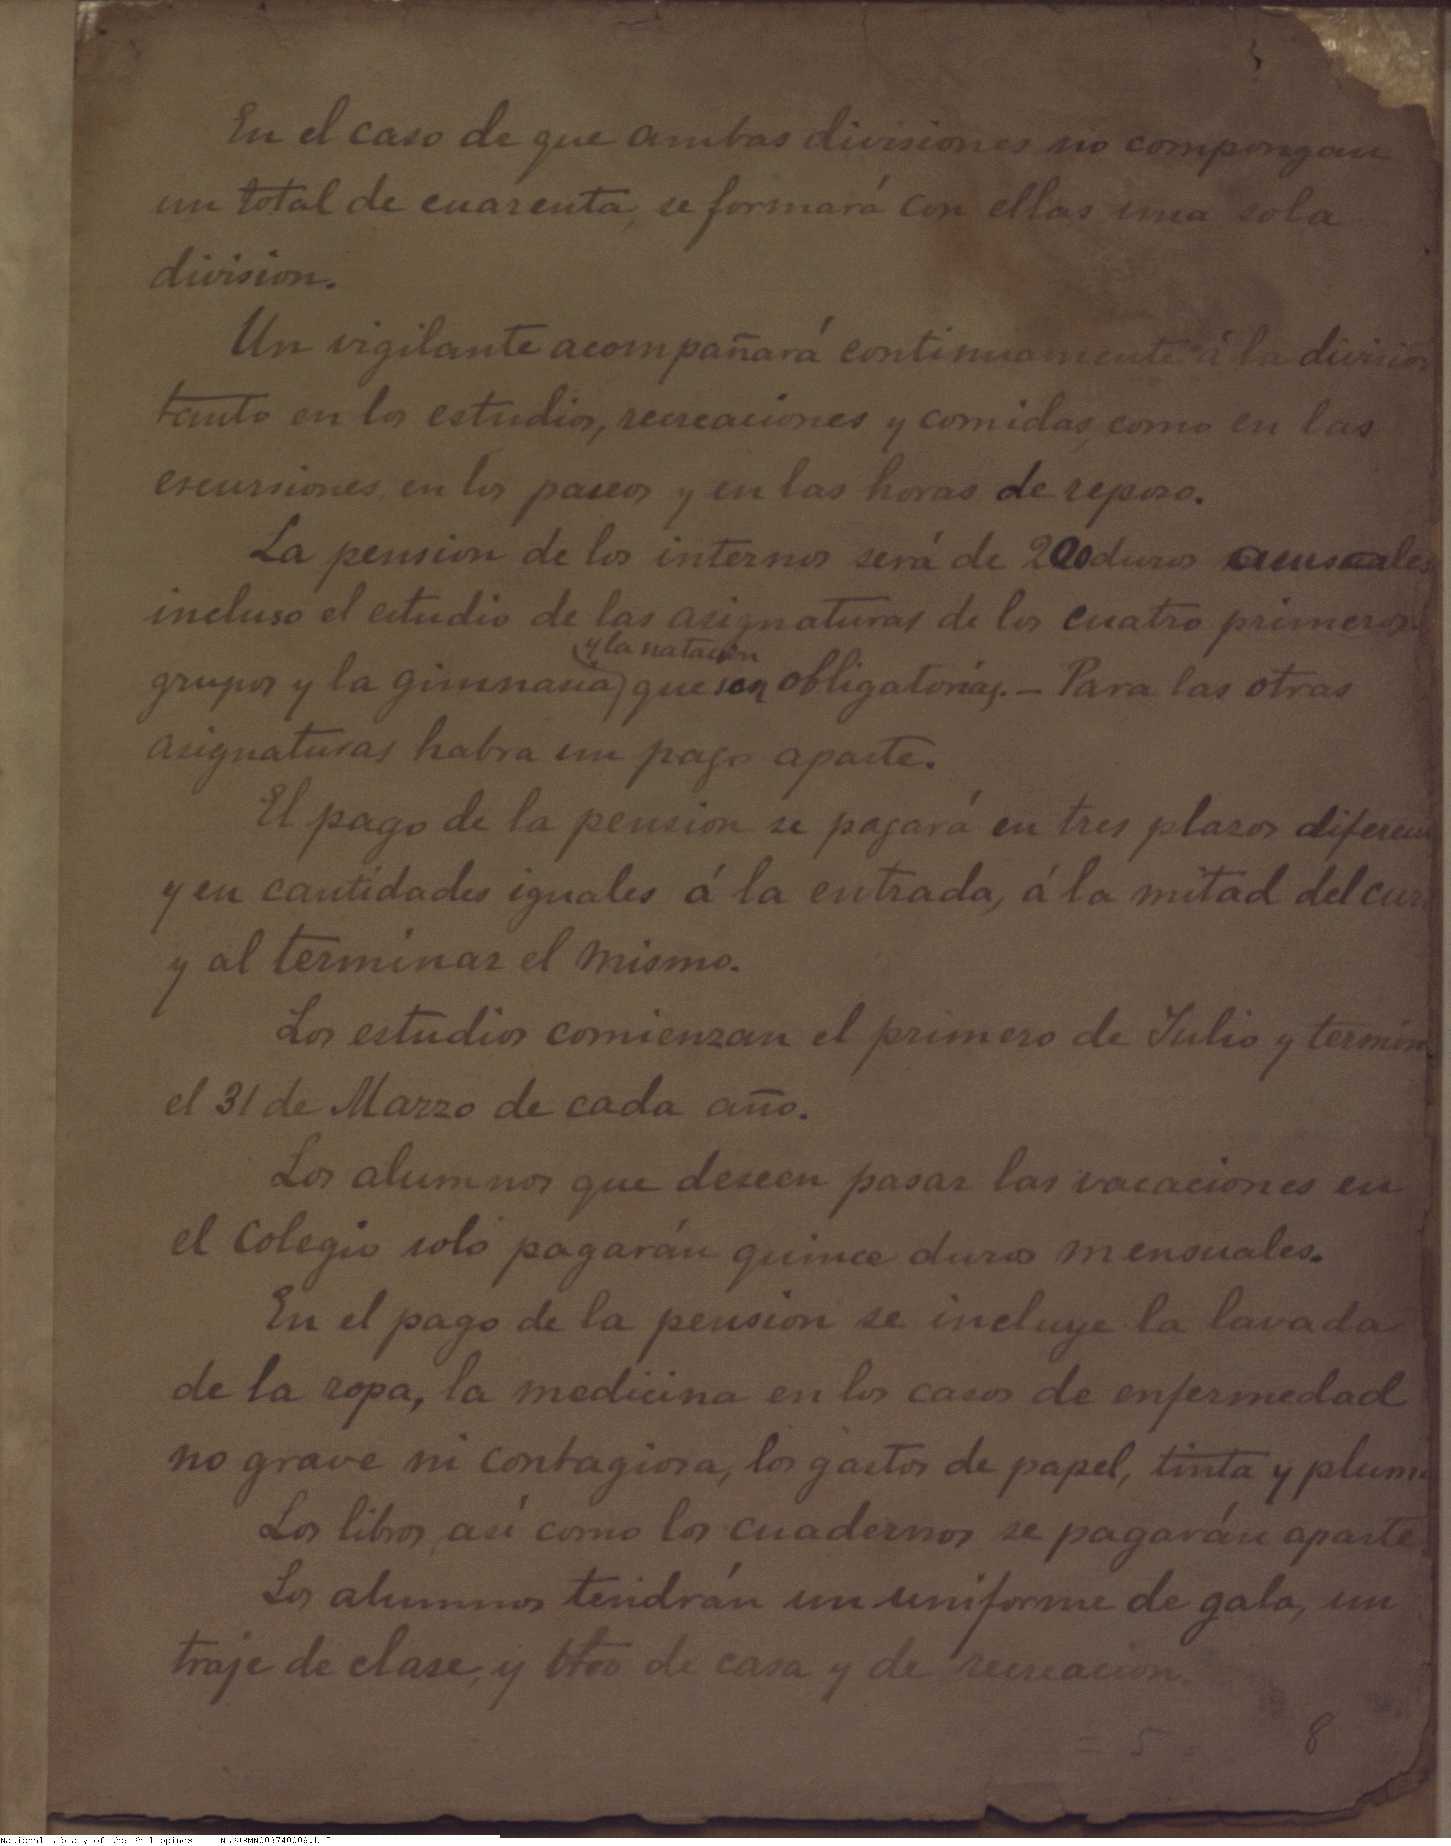 En el caso de que ambas divisiones no compongan
un total de cuarenta, se formará con ellas una sola
division.
Un vigilante acompañará continuamente á la division
tanto en los estudios, recreaciones y comidas, como en las
escursiones, en los paseos y en las horas de reposo.
La pension de los internos será de 200 duros
incluso el estudio de las asignaturas de los cuatro primeros
y la natacion
grupos y la gimnasia, que son obligatorias. — Para las otras
asignaturas habra un pago aparte.
El pago de la pension se pagará en tres plazos diferen
y en cantidades iguales á la entrada, á la mitad del cur
y al terminar el mismo.
Los estudios comienzan el primero de Julio y termin
el 31 de Marzo de cada año.
Los alumnos que deseen pasar las vacaciones en
el Colegio solo pagarán quince duros mensuales.
En el pago de la pension se incluye la lavada
de la ropa, la medicina en los casos de enfermedad
no grave ni contagiosa, los gastos de papel, tinta y pluma
Los libros, así como los cuadernos se pagarán aparte.
Los alumnos tendrán un uniforme de gala, un
traje de clase, y otro de casa y de recreacion.
= 5 = 8
National Library of the Philippines